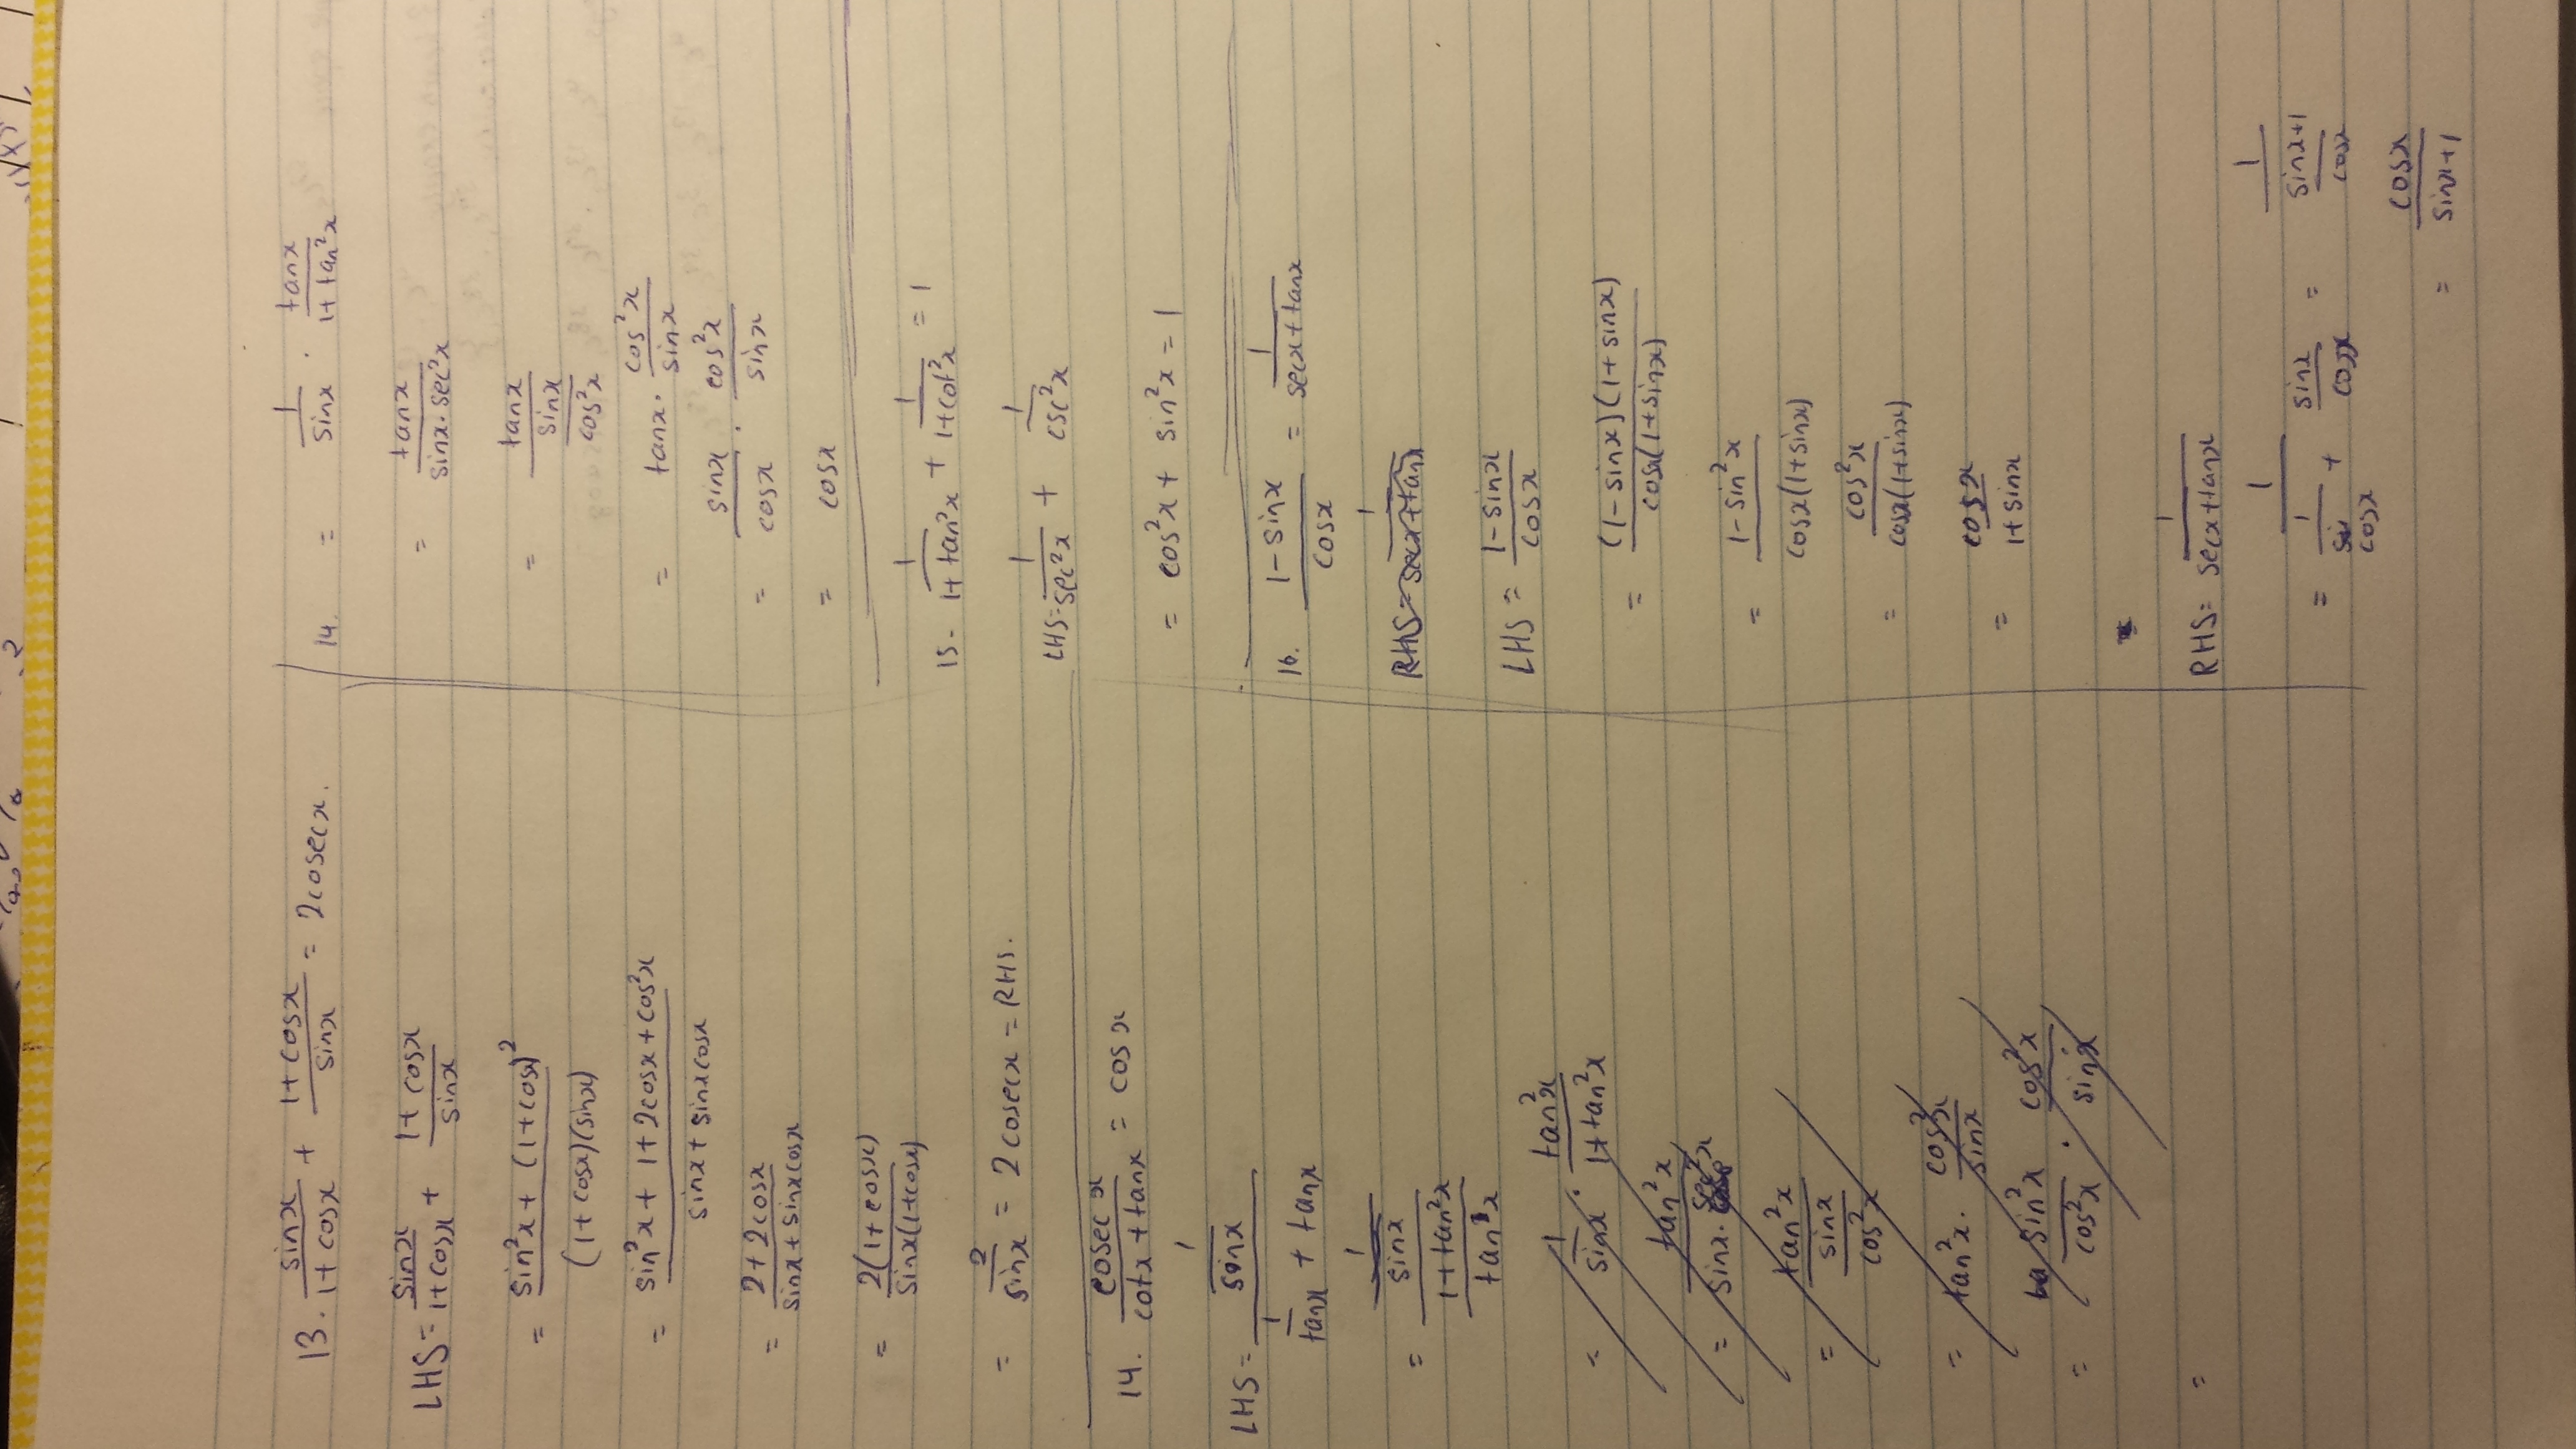 13. sinx/(1+cosx) + (1+cosx)/sinx = 2cosecx.
LHS = sinx/(1+cosx) + (1+cosx)/sinx
= (sin²x + (1+cosx)²)/((1+cosx)(sinx))
= (sin²x + 1 + 2cosx + cos²x)/(sinx + sinxcosx)
= (2+2cosx)/(sinx + sinxcosx)
= 2(1+cosx)/(sinx(1+cosx))
= 2/sinx = 2cosecx = RHS.
14. cosecx/(cotx + tanx) = cosx
LHS = (1/sinx)/(1/tanx + tanx)
= (1/sinx)/((1+tan²x)/tan²x)
= 1/sinx · tan²x/(1+tan²x)
= tan²x/(sinx · sec²x)
= tan²x/(sinx/cos²x)
= tan²x · cos²x/sinx
= sin²x/cos²x · cos²x/sinx
=
14. = 1/sinx · tanx/(1+tan²x)
= tanx/(sinx · sec²x)
= tanx/(sinx/cos²x)
= tanx · cos²x/sinx
= sinx/cosx · cos²x/sinx
= cosx
15. 1/(1+tan²x) + 1/(1+cot²x) = 1
LHS = 1/sec²x + 1/csc²x
= cos²x + sin²x = 1
16. (1-sinx)/cosx = 1/(secx+tanx)
RHS = 1/(secx+tanx)
LHS = (1-sinx)/cosx
= (1-sinx)(1+sinx)/(cosx(1+sinx))
= (1-sin²x)/(cosx(1+sinx))
= cos²x/(cosx(1+sinx))
= cosx/(1+sinx)
RHS = 1/(secx+tanx)
= 1/(1/cosx + sinx/cosx) = 1/((sinx+1)/cosx)
= cosx/(sinx+1)